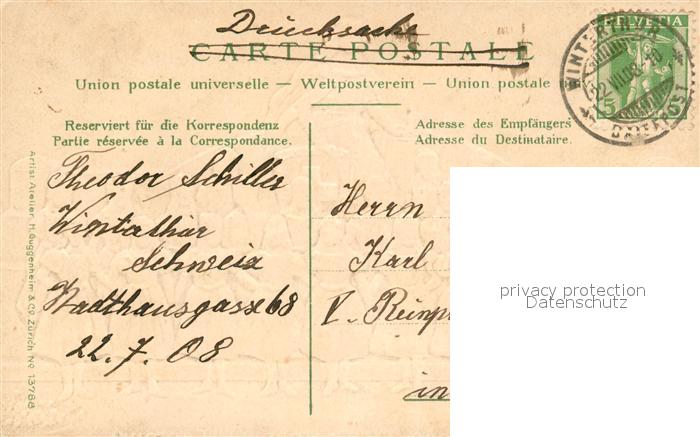 Drucksache
CARTE POSTALE
HELVETIA
5
WINTERTHUR
BRIEFPOST
Union postale universelle — Weltpostverein — Union postale
Reserviert für die Korrespondenz
Partie réservée à la Correspondance.
Adresse des Empfängers
Adresse du Destinataire.
Theodor Schiller
Wintathur
Schweiz
Stadthausgasse 68
22.7.08
Herrn
Karl
V.
in
privacy protection
Datenschutz
Artist. Atelier H. Guggenheim & Co. Zürich No 13788